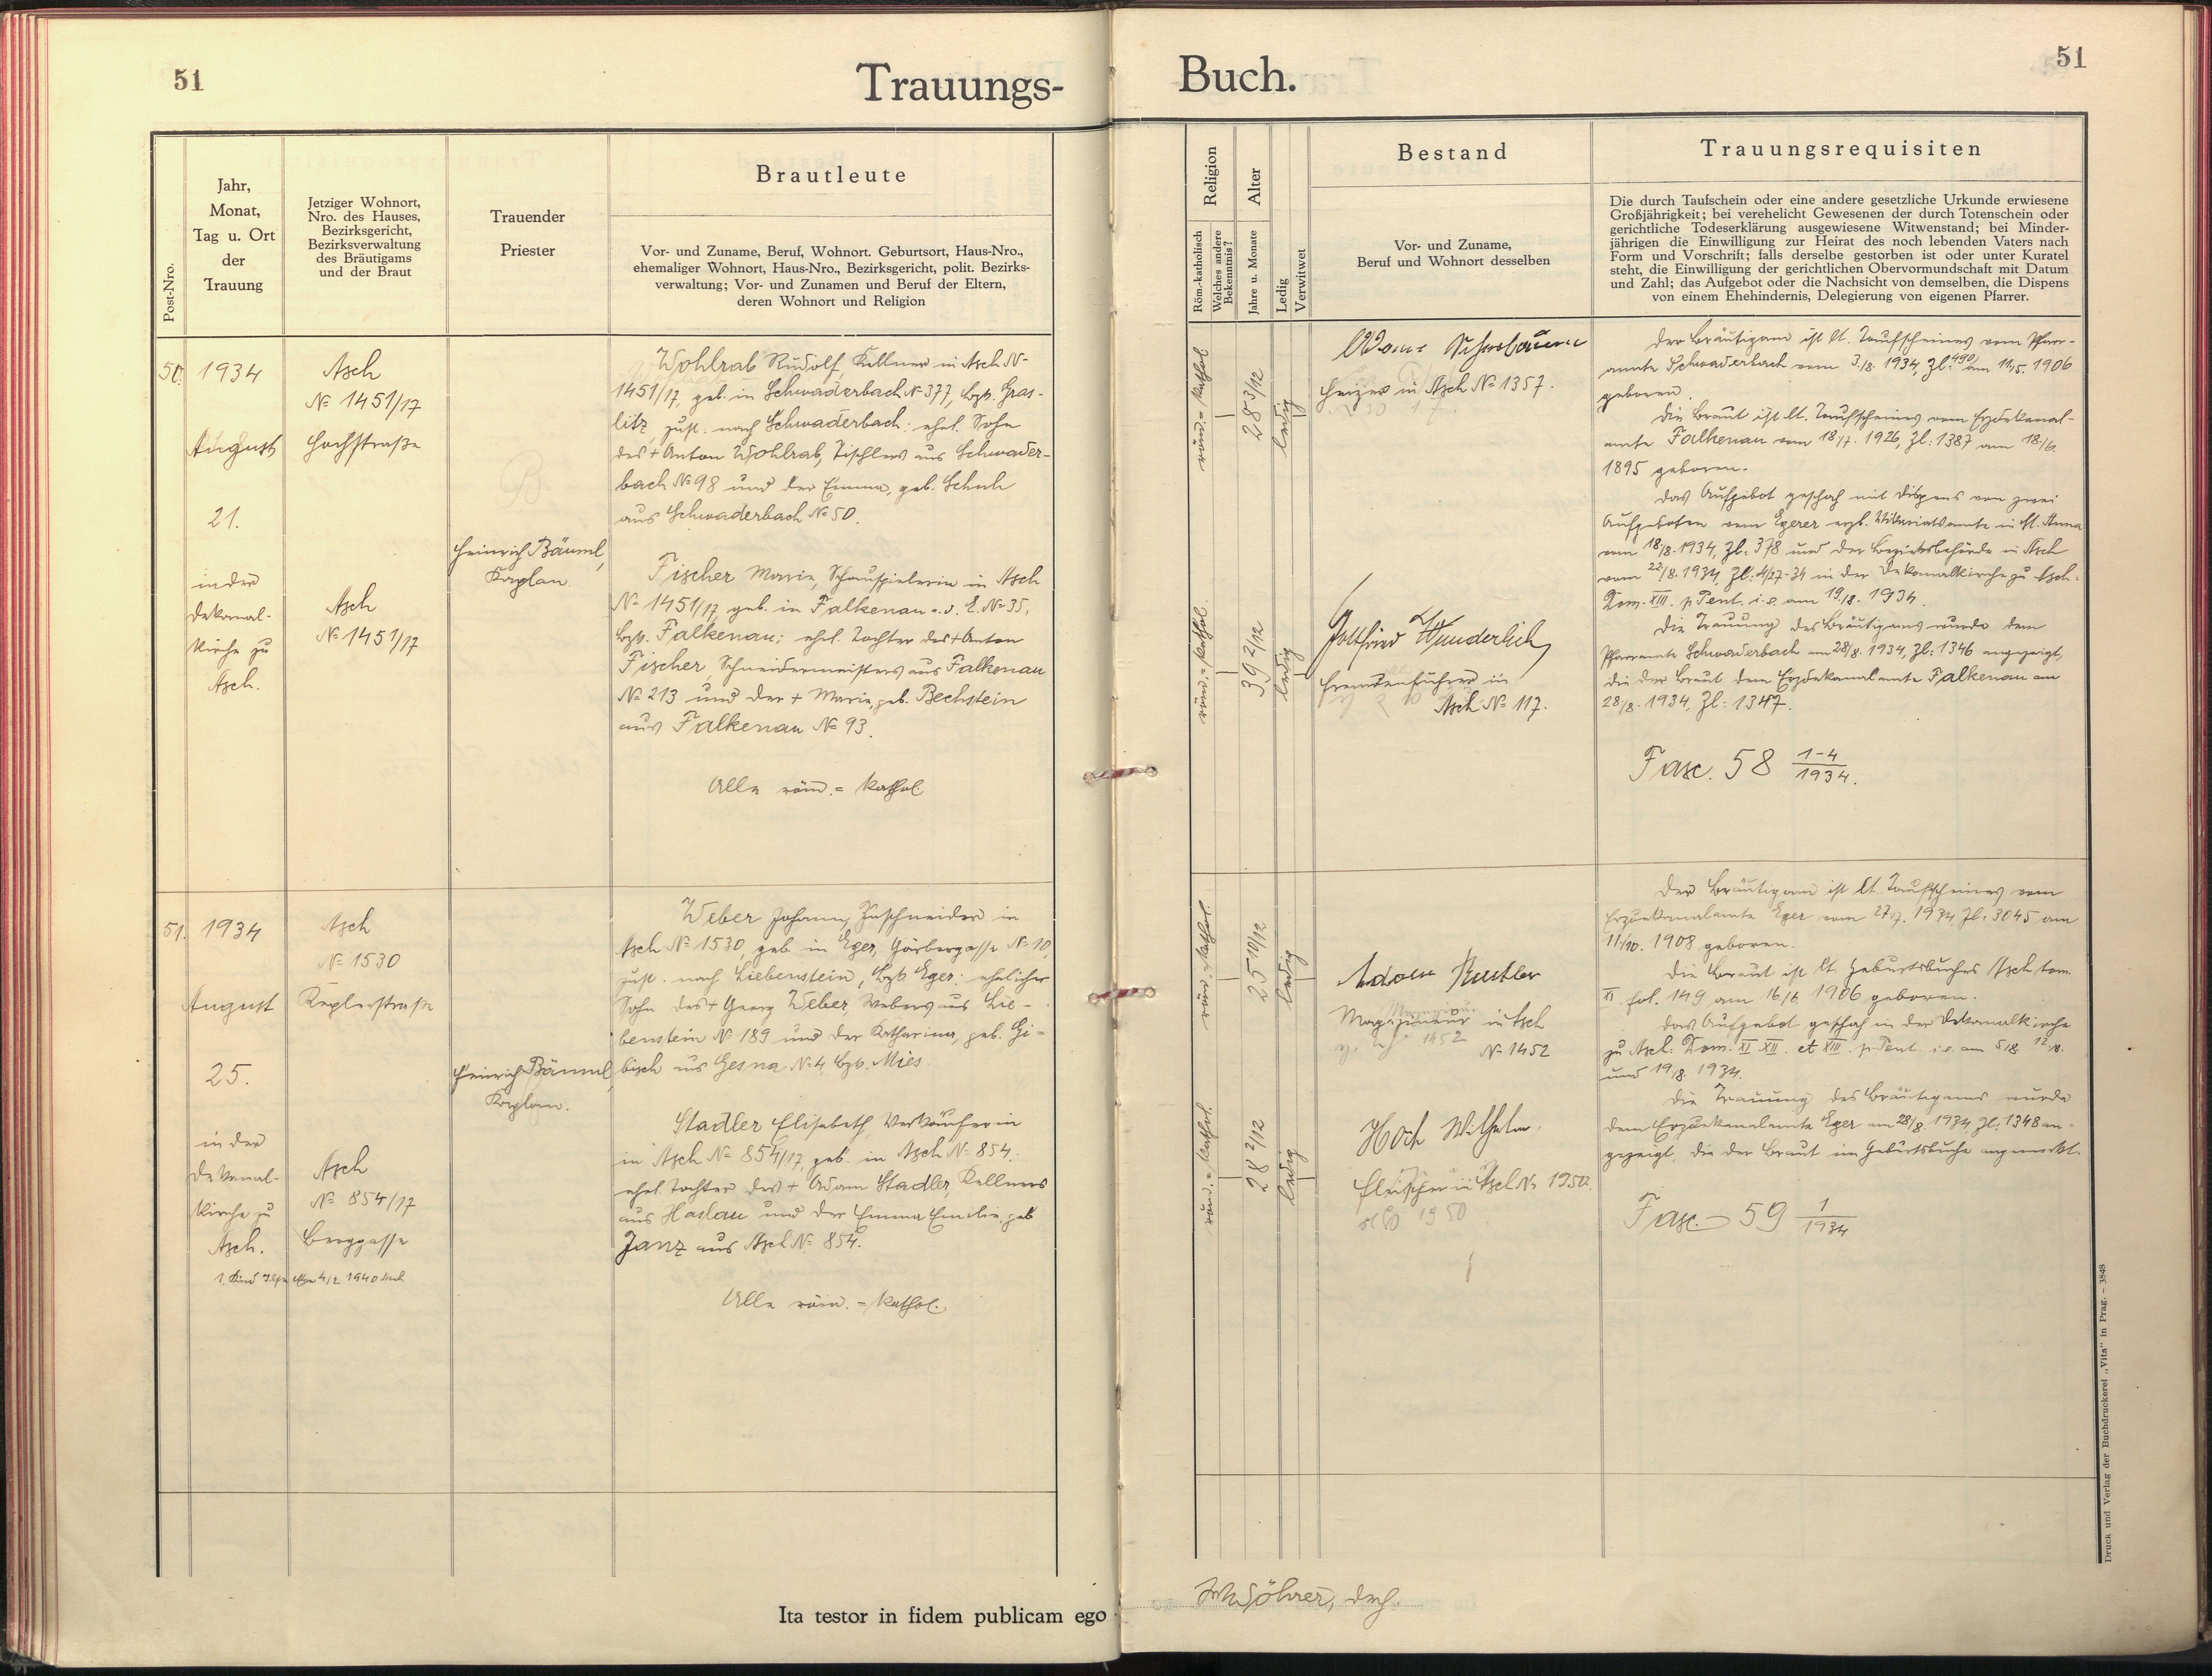 51
Trauungs-
Post-Nro.
Jahr,
Monat,
Tag u. Ort
der
Trauung
Jetziger Wohnort,
Nro. des Hauses,
Bezirksgericht,
Bezirksverwaltung
des Bräutigams
und der Braut
Trauender
Priester
Brautleute
Vor- und Zuname, Beruf, Wohnort. Geburtsort, Haus-Nro.,
ehemaliger Wohnort, Haus-Nro., Bezirksgericht, polit. Bezirks-
verwaltung; Vor- und Zunamen und Beruf der Eltern,
deren Wohnort und Religion
50.
1934
August
21.
in der
Dekanal-
kirche zu
Asch.
Asch
№ 1451/17
Hochstraße
Asch
№ 1451/17
Heinrich Bäuml,
Kaplan.
Wohlrab Rudolf, Kellner in Asch №
1451/17, geb. in Schwaderbach № 377, Bzk. Gras-
litz, zust. nach Schwaderbach: ehel. Sohn
des + Anton Wohlrab, Tischlers aus Schwader-
bach № 98 und der Emma, geb. Schuh
aus Schwaderbach № 50.
Fischer Marie, Schauspielerin in Asch
№ 1451/17, geb. in Falkenau a. d. E. № 35,
Bzk. Falkenau; ehel. Tochter des + Anton
Fischer, Schneidermeisters aus Falkenau
№ 213 und der + Marie, geb. Bechstein
aus Falkenau № 93.
Alle röm. = kathol.
51.
1934
August
25.
in der
Dekanal-
kirche zu
Asch.
Asch
№ 1530
Keplerstraße
Asch
№ 854/17
Berggasse
1. Kind 4/2 1940
Heinrich Bäuml,
Kaplan.
Weber Johann, Zuschneider in
Asch № 1530, geb. in Eger, Görbergasse № 10,
zust. nach Liebenstein, Bzk. Eger: ehelicher
Sohn des + Georg Weber, Webers aus Lie-
benstein № 189 und der Katharina, geb. Gi-
bisch aus Gesna № 4, Bzk. Mies.
Stadler Elisabeth, Verkäuferin
in Asch № 854/17, geb. in Asch № 854.
ehel. Tochter des + Adam Stadler, Kellners
aus Haslau und der Emma Emilie geb
Janz aus Asch № 854.
Alle röm. = kathol.
Ita testor in fidem publicam ego
Buch.
51
Religion
Röm.-katholisch
Welches andere
Bekenntnis?
Alter
Jahre u. Monate
Ledig
Verwitwet
Bestand
Vor- und Zuname,
Beruf und Wohnort desselben
Trauungsrequisiten
Die durch Taufschein oder eine andere gesetzliche Urkunde erwiesene
Großjährigkeit; bei verehelicht Gewesenen der durch Totenschein oder
gerichtliche Todeserklärung ausgewiesene Witwenstand; bei Minder-
jährigen die Einwilligung zur Heirat des noch lebenden Vaters nach
Form und Vorschrift; falls derselbe gestorben ist oder unter Kuratel
steht, die Einwilligung der gerichtlichen Obervormundschaft mit Datum
und Zahl; das Aufgebot oder die Nachsicht von demselben, die Dispens
von einem Ehehindernis, Delegierung von eigenen Pfarrer.
röm. = kathol.
28 3/12
ledig
röm. = kathol.
39 2/12
ledig
Heizer in Asch № 1357.
Gottfried Wunderlich
Fremdenführer in
Asch № 117.
Der Bräutigam ist lt. Taufscheines vom Pfarr-
amte Schwaderbach vom 3./8. 1934, Zl: 490 am 11/5. 1906
geboren.
Die Braut ist lt. Taufscheines vom Erzdekanal-
amte Falkenau vom 18/7. 1926, Zl: 1387 am 18./6.
1895 geboren.
Das Aufgebot geschah mit Dispens von zwei
Aufgeboten vom Egerer erzb. Vikariatsamte in St. Anna
vom 18/8. 1934, Zl: 378 und der Bezirksbehörde in Asch
vom 22/8. 1934, Zl: 4/27-34 in der Dekanalkirche zu Asch:
Dom. XIII. p. Pent. i. e. am 19./8. 1934.
Die Trauung des Bräutigams wurde dem
Pfarramte Schwaderbach am 28/8. 1934, Zl: 1346 angezeigt,
die der Braut dem Erzdekanalamte Falkenau am
28/8. 1934, Zl: 1347.
Fasc. 58 1-4/1934.
röm. = kathol.
25 10/12
ledig
röm. = kathol.
28 2/12
ledig
Magazineur in Asch
№ 1452
Hoch Wilhelm.
Fleischer in Asch № 1950.
Der Bräutigam ist lt. Taufscheines vom
Erzdekanalamte Eger vom 27/7. 1934, Zl: 3045 am
11/10. 1908 geboren.
Die Braut ist lt. Geburtsbuches Asch tom.
XI. fol. 149 am 16/6. 1906 geboren.
Das Aufgebot geschah in der Dekanalkirche
zu Asch: Dom. XI. XII. et XIII. p. Pent. i. e. am 5/8. 12./8.
und 19/8. 1934.
Die Trauung des Bräutigams wurde
dem Erzdekanalamte Eger am 28/8. 1934, Zl: 1348 an-
gezeigt, die der Braut im Geburtsbuche angemerkt.
Fasc. 59 1/1934
Druck und Verlag der Buchdruckerei „Vita" in Prag. – 3848